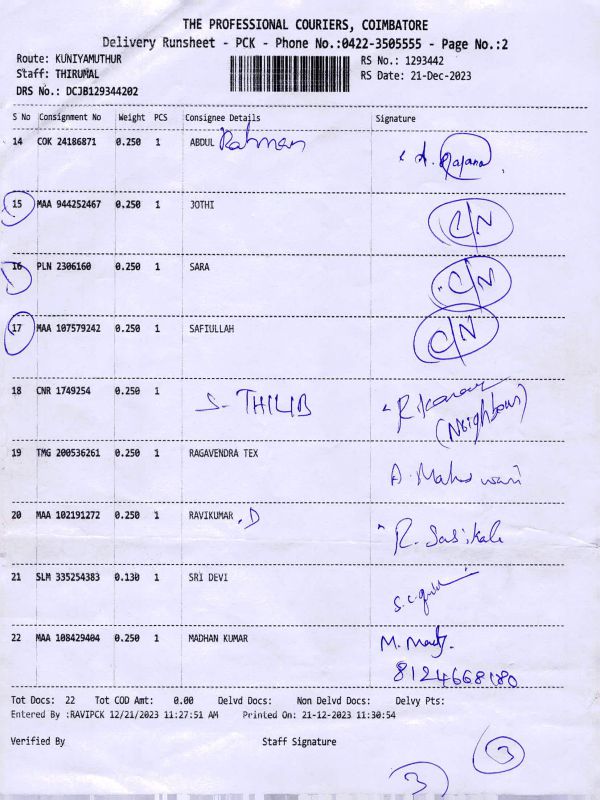 THE PROFESSIONAL COURIERS, COIMBATORE
Delivery Runsheet - PCK - Phone No.:0422-3505555 - Page No.:2
Route: KUNIYAMUTHUR RS No.: 1293442
Staff: THIRUMAL RS Date: 21-Dec-2023
DRS No.: DCJB129344202
S No Consignment No Weight PCS Consignee Details Signature
14 COK 24186871 0.250 1 ABDUL Rahman
15 MAA 944252467 0.250 1 JOTHI C/N
16 PLN 2306160 0.250 1 SARA C/N
17 MAA 107579242 0.250 1 SAFIULLAH C/N
18 CNR 1749254 0.250 1 S-THILIB
(Neighbour)
19 TMG 200536261 0.250 1 RAGAVENDRA TEX
20 MAA 102191272 0.250 1 RAVIKUMAR .D R. Sasikala
21 SLM 335254383 0.130 1 SRI DEVI
22 MAA 108429404 0.250 1 MADHAN KUMAR
8124668180
Tot Docs: 22 Tot COD Amt: 0.00 Delvd Docs: Non Delvd Docs: Delvy Pts:
Entered By :RAVIPCK 12/21/2023 11:27:51 AM Printed On: 21-12-2023 11:30:54
Verified By Staff Signature
3
3